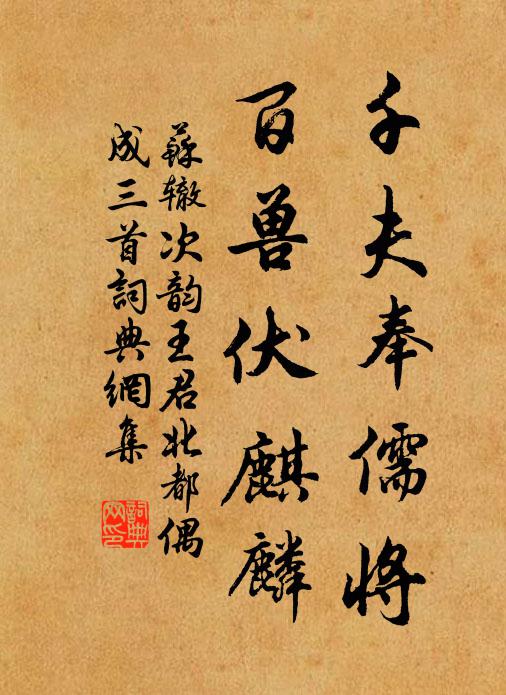 千夫奉儒将
百兽伏麒麟
蘇辙次韵王君北都偶
成三首詞典網集
詞典
网印